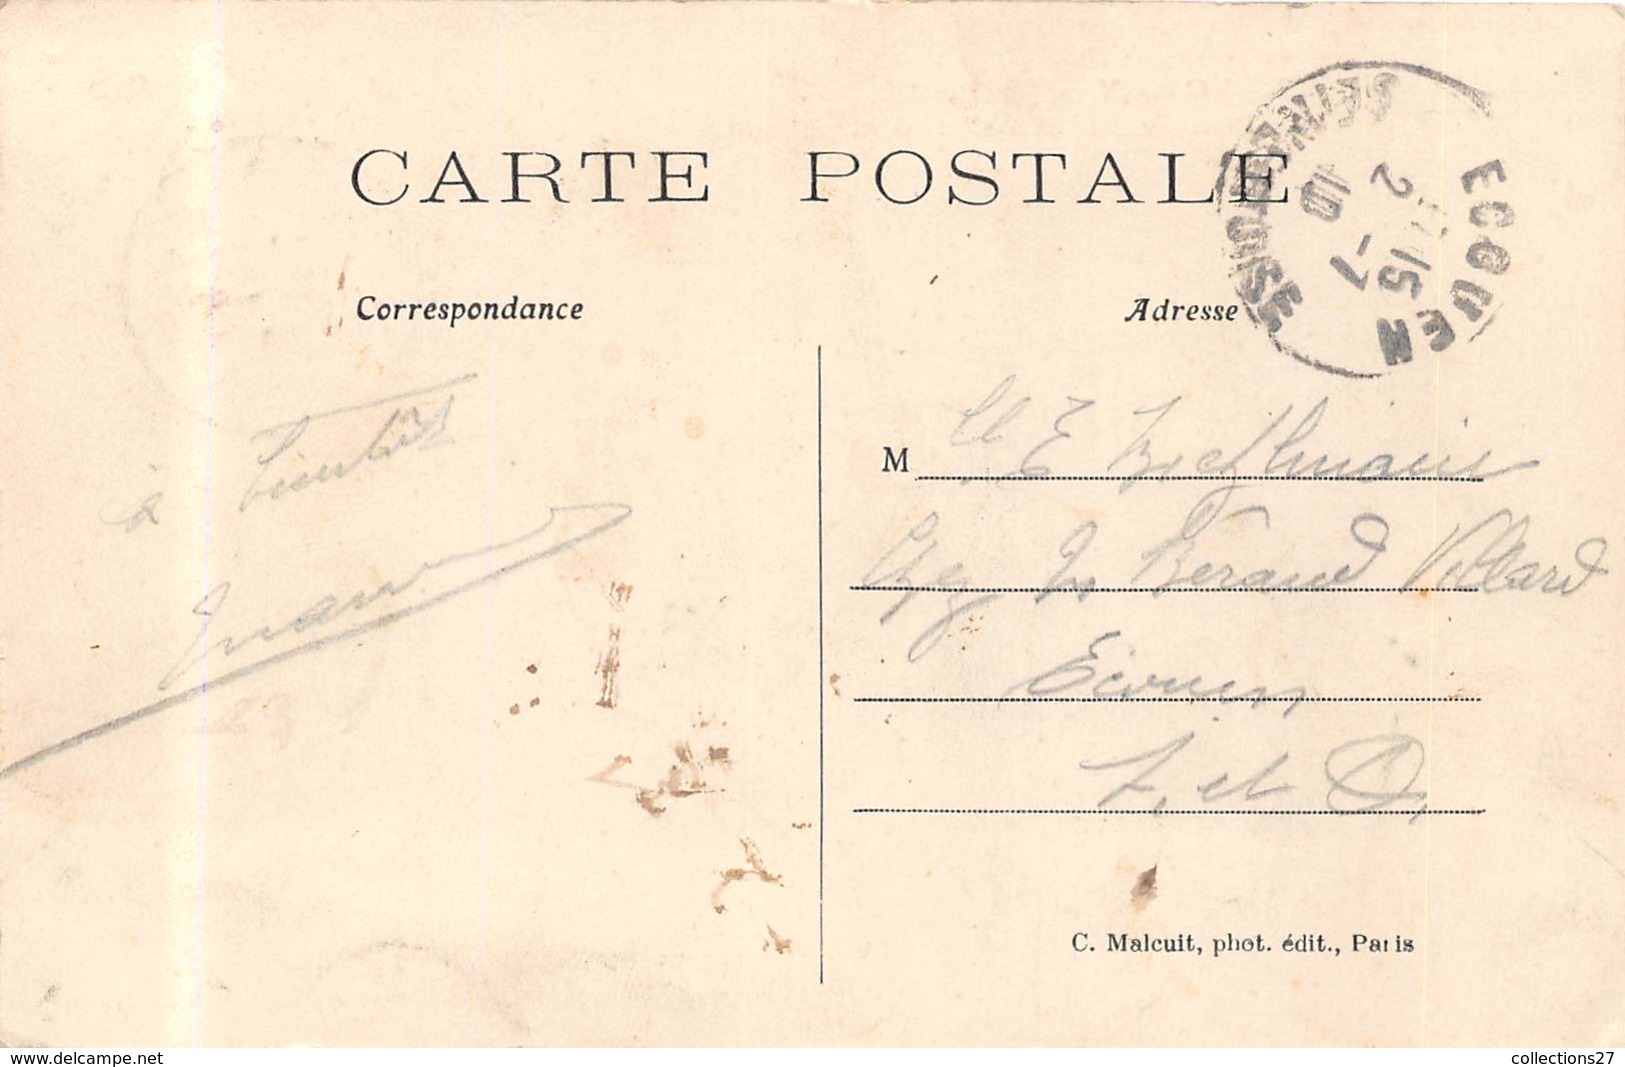 CARTE POSTALE
Correspondance
Adresse
ECOUEN
SEINE-ET-OISE
2 15
10 -7
à bientôt
M lle E
Chez Mr Béraud Villard
Ecouen
S. et O.
C. Malcuit, phot. édit., Paris
www.delcampe.net
collections27